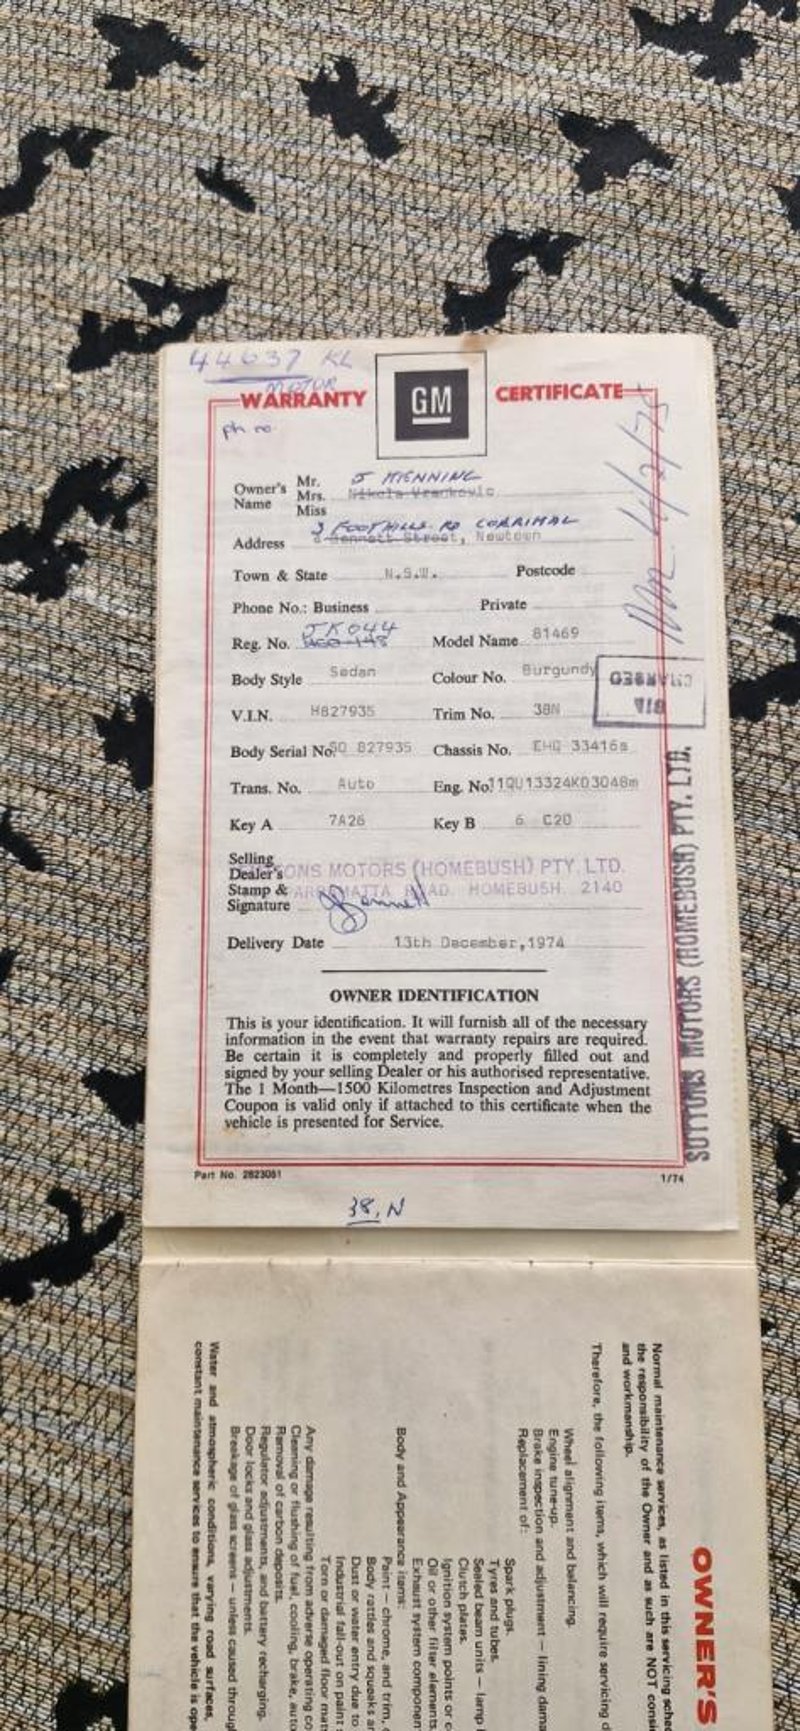 44637 KL
MOTOR
WARRANTY GM CERTIFICATE
ph no.
4/2/75
Owner's Name Mr. Mrs. Miss
J HENNING
3 FOOTHILLS RD CORRIMAL
Address Bennett Street, Newtown
Town & State N.S.W. Postcode
Phone No.: Business Private
JK044
Reg. No. Model Name 81469
Body Style Sedan Colour No. Burgundy
V.I.N. H827935 Trim No. 38N
Body Serial No. SQ 827935 Chassis No. EHQ 33416s
Trans. No. Auto Eng. No. 11QU13324K03048m
Key A 7A26 Key B 6 C20
Selling Dealer's Stamp & Signature
SUTTONS MOTORS (HOMEBUSH) PTY. LTD.
PARRAMATTA ROAD HOMEBUSH 2140
Bennett
Delivery Date 13th December,1974
OWNER IDENTIFICATION
This is your identification. It will furnish all of the necessary
information in the event that warranty repairs are required.
Be certain it is completely and properly filled out and
signed by your selling Dealer or his authorised representative.
The 1 Month—1500 Kilometres Inspection and Adjustment
Coupon is valid only if attached to this certificate when the
vehicle is presented for Service.
Part No. 2823051 1/74
38, N
CHANGED
SUTTONS MOTORS (HOMEBUSH) PTY. LTD.
OWNER'S
Normal maintenance services, as listed in this servicing
the responsibility of the Owner and as such are NOT
and workmanship.
Therefore, the following items, which will require servicing
Wheel alignment and balancing.
Engine tune-up.
Brake inspection and adjustment — lining
Replacement of:
Spark plugs.
Tyres and tubes.
Sealed beam units — lamp
Clutch plates.
Ignition system points or
Oil or other filter elements.
Exhaust system
Body and Appearance items:
Paint — chrome, and trim,
Body rattles and squeaks
Dust or water entry due to
Industrial fall-out on paint
Torn or damaged floor
Any damage resulting from adverse operating
Cleaning or flushing of fuel, cooling, brake,
Removal of carbon deposits.
Regulator adjustments, and battery recharging.
Door locks and glass adjustments.
Breakage of glass screens — unless caused
Water and atmospheric conditions, varying road surfaces,
constant maintenance services to ensure that the vehicle is